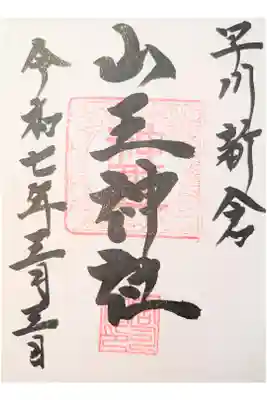 早川新倉
山王神社
令和七年三月三日